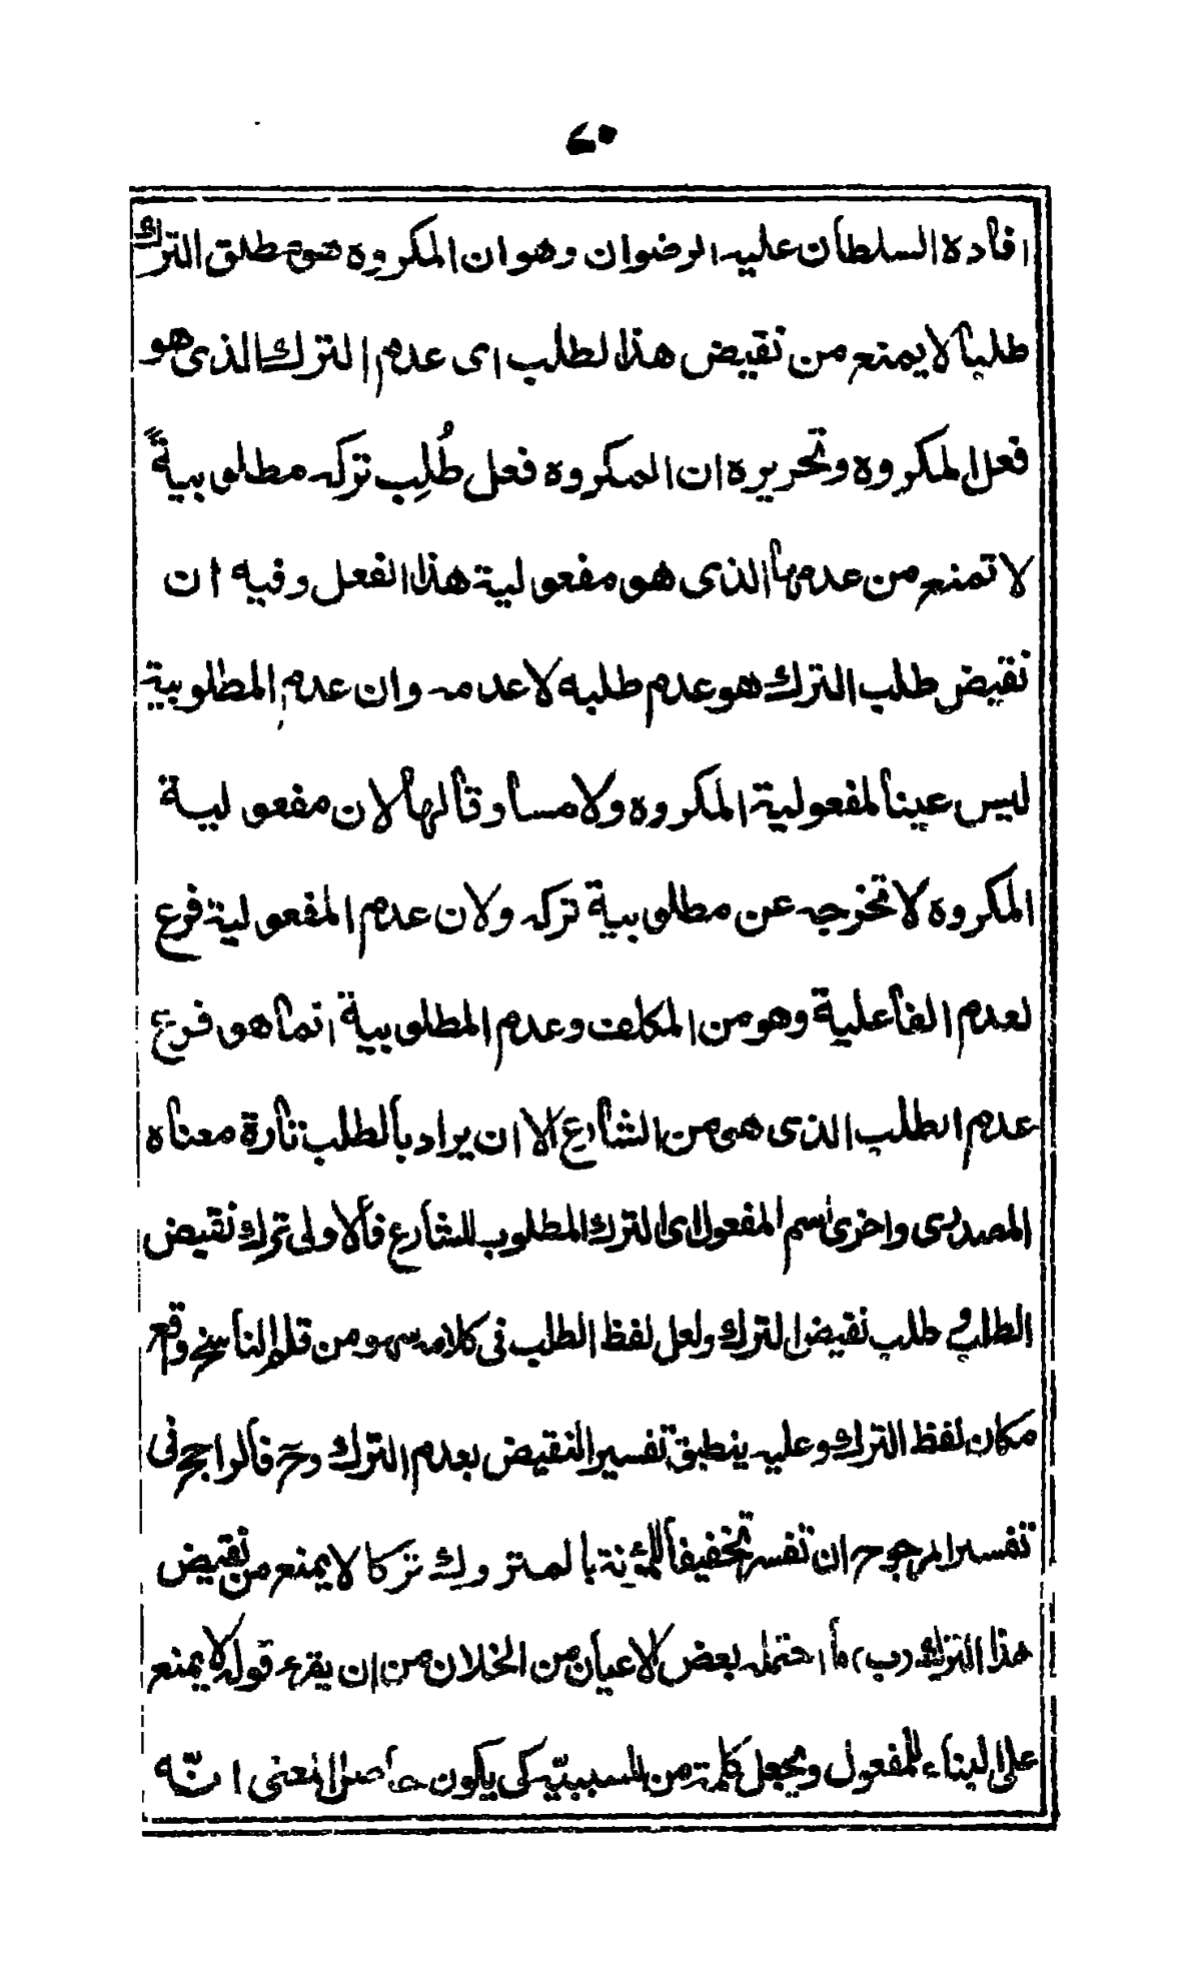 افاده السلطان عليه الرضوان وهو ان المكروه هو مطلق الترك
طلبا لا يمنع من نقيض هذا الطلب اى عدم الترك الذى هو
فعل المكروه وتحريره ان المكروه فعل طُلِب تركه مطلوبيةً
لا تمنع من عدمها الذى هو مفعولية هذا الفعل وفيه ان
نقيض طلب الترك هو عدم طلبه لا عدمه وان عدم المطلوبية
ليس عينا لمفعولية المكروه ولا مساوقا لها لان مفعولية
المكروه لا تخرجه عن مطلوبية تركه ولان عدم المفعولية فرع
لعدم الفاعلية وهو من المكلف وعدم المطلوبية انما هو فرع
عدم الطلب الذى هى من الشارع الا ان يراد بالطلب تارة معناه
المصدرى واخرى اسم المفعول اى الترك المطلوب للشارع فالاولى ترك نقيض
الطلب طلب نقيض الترك ولعل لفظ الطلب فى كلامه سهو من قلم الناسخ وقع
مكان لفظ الترك وعليه ينطبق تفسير النقيض بعدم الترك وح فالراجح فى
تفسير المرجوح ان تفسر تخفيفا للمؤنة بالمتروك تركا لا يمنع من نقيض
هذا الترك (ب) ما احتمله بعض الاعيان من الخلان من ان يقرء قوله لا يمنع
على البناء للمفعول ويجعل كلمة من السببيّة كى يكون حاصل المعنى انّه